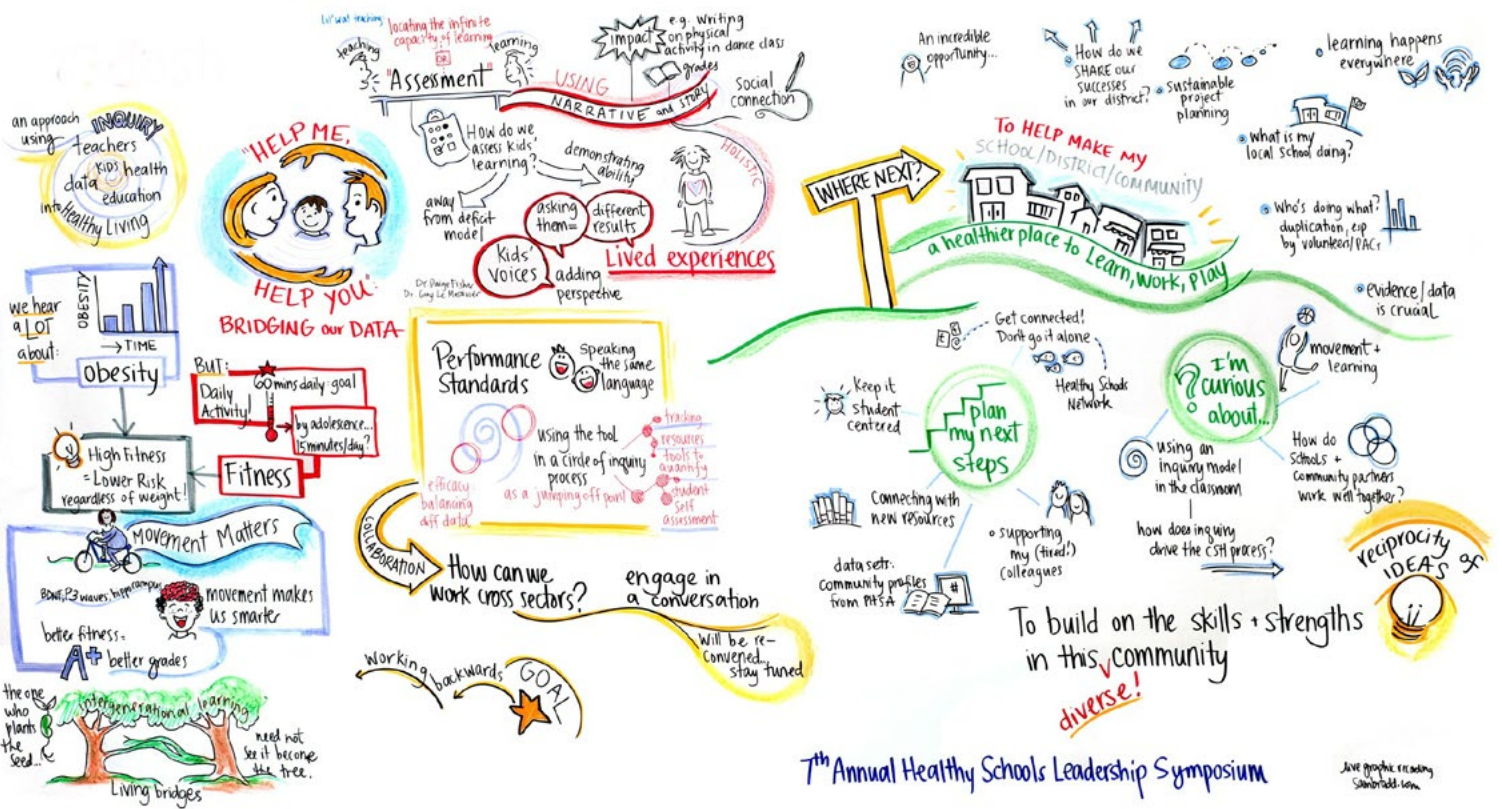 an approach
using
INQUIRY
teachers
KIDS
health
data
education
into Healthy Living
"HELP ME,
HELP YOU"
BRIDGING our DATA
we hear
a LOT
about:
OBESITY
→ TIME
Obesity
BUT:
Daily
Activity!
60 mins daily = goal
by adolescence...
15 minutes/day?
Fitness
High Fitness
= Lower Risk
regardless of weight!
Movement Matters
BDNF, P3 waves, hippocampus
movement makes
us smarter
better fitness =
A+ better grades
the one
who
plants
the
seed...
intergenerational learning
need not
see it become
the tree.
Living bridges
Lil'wat teaching
locating the infinite
capacity of learning
OR
teaching
learning
"Assessment"
USING
NARRATIVE and STORY
impact
e.g. writing
on physical
activity in dance class
grades
Social
connection
HOLISTIC
How do we
assess kids'
learning?
demonstrating
ability
away
from deficit
model
asking
them=
different
results
Kids'
voices
adding
perspective
Lived experiences
Dr. Paige Fisher
Performance
Standards
Speaking
the same
language
using the tool
in a circle of inquiry
process
as a jumping off point
tracking
resources
tools to
quantify
student
self
assessment
efficacy
balancing
diff data
COLLABORATION
How can we
work cross sectors?
engage in
a conversation
Will be re-
convened...
stay tuned
working
backwards
GOAL
An incredible
opportunity...
How do we
SHARE our
successes
in our district?
sustainable
project
planning
learning happens
everywhere
what is my
local school doing?
WHERE NEXT?
TO HELP MAKE MY
SCHOOL/DISTRICT/COMMUNITY
a healthier place to Learn, work, play
Who's doing what?
duplication, esp
by volunteer/PACs
evidence/data
is crucial
Get connected!
Don't go it alone
Healthy Schools
Network
Keep it
student
centered
plan
my next
steps
Connecting with
new resources
data sets:
community profiles
from PHSA
#
supporting
my (tired!)
colleagues
? I'm
curious
about...
movement +
learning
using an
inquiry model
in the classroom
how does inquiry
drive the CSH process?
How do
schools +
community partners
work well together?
reciprocity of
IDEAS
To build on the skills + strengths
in this community
diverse!
7th Annual Healthy Schools Leadership Symposium
live graphic recording
sambradd.com